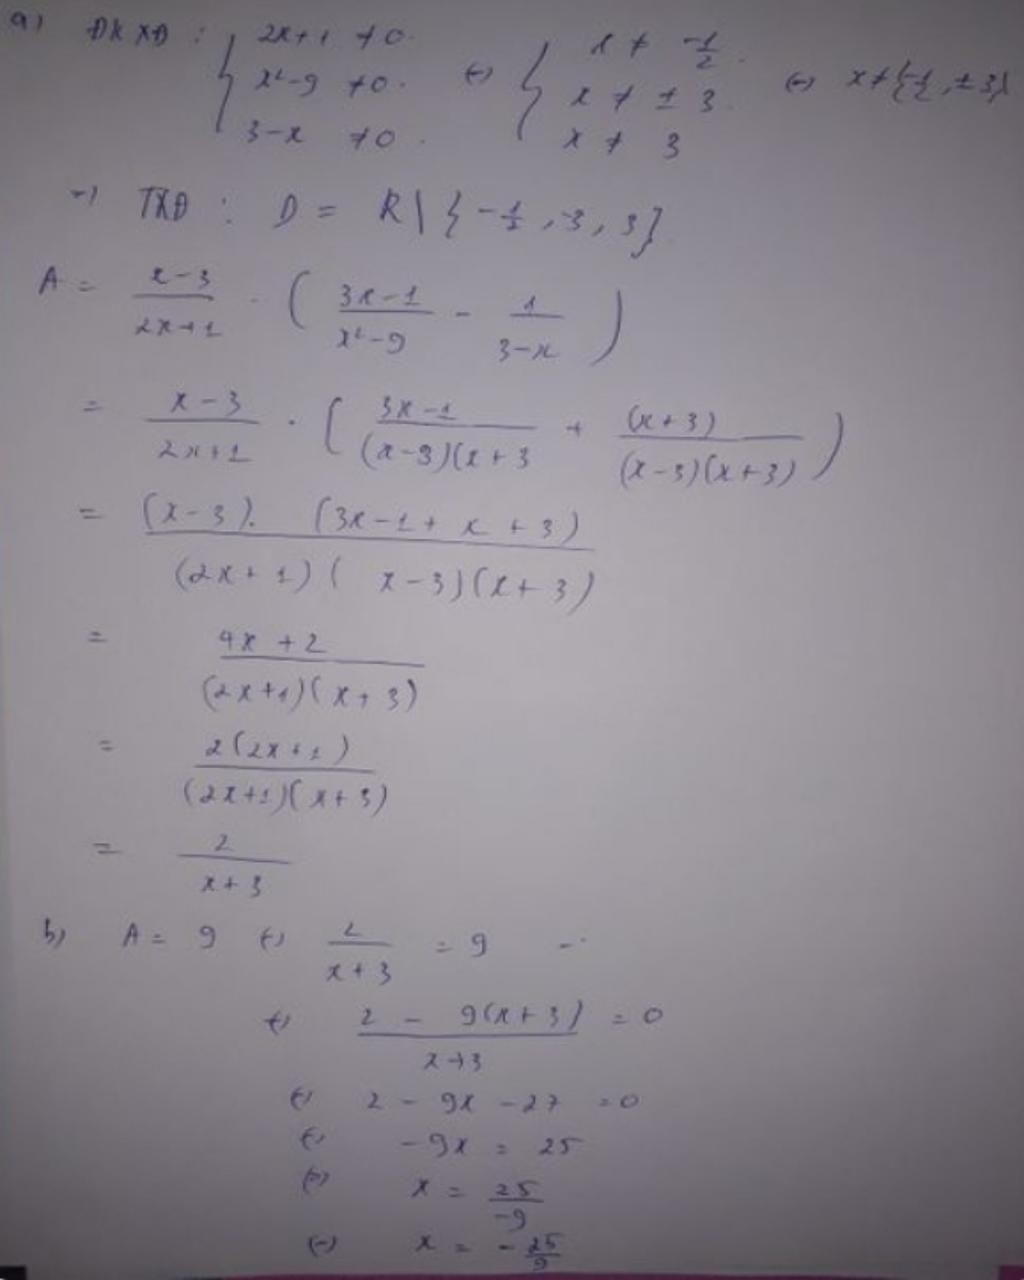 a) ĐKXĐ : { 2x+1 ≠ 0. x²-9 ≠ 0. 3-x ≠ 0. (=) { x ≠ -1/2. x ≠ ±3. x ≠ 3 (=) x ≠ {-1/2, ±3}
=) TXĐ : D = R \ { -1/2, -3, 3}
A = (x-3)/(2x+1) . ( (3x-1)/(x²-9) - 1/(3-x) )
= (x-3)/(2x+1) . ( (3x-1)/((x-3)(x+3) + (x+3)/((x-3)(x+3)) )
= (x-3). (3x-1+x+3) / (2x+1)(x-3)(x+3)
= 4x+2 / (2x+1)(x+3)
= 2(2x+1) / (2x+1)(x+3)
= 2 / x+3
b) A = 9 (=) 2/(x+3) = 9
(=) 2 - 9(x+3) / x+3 = 0
(=) 2 - 9x - 27 = 0
(=) -9x = 25
(=) x = 25/-9
(=) x = -25/9